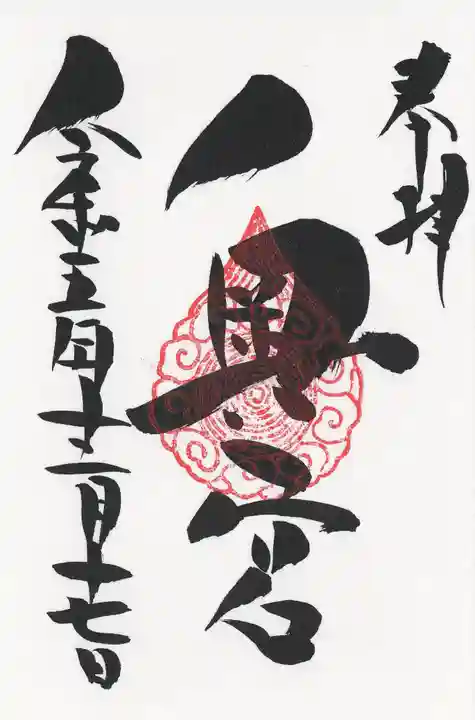 奉拝
奥宮
令和五年十二月十七日